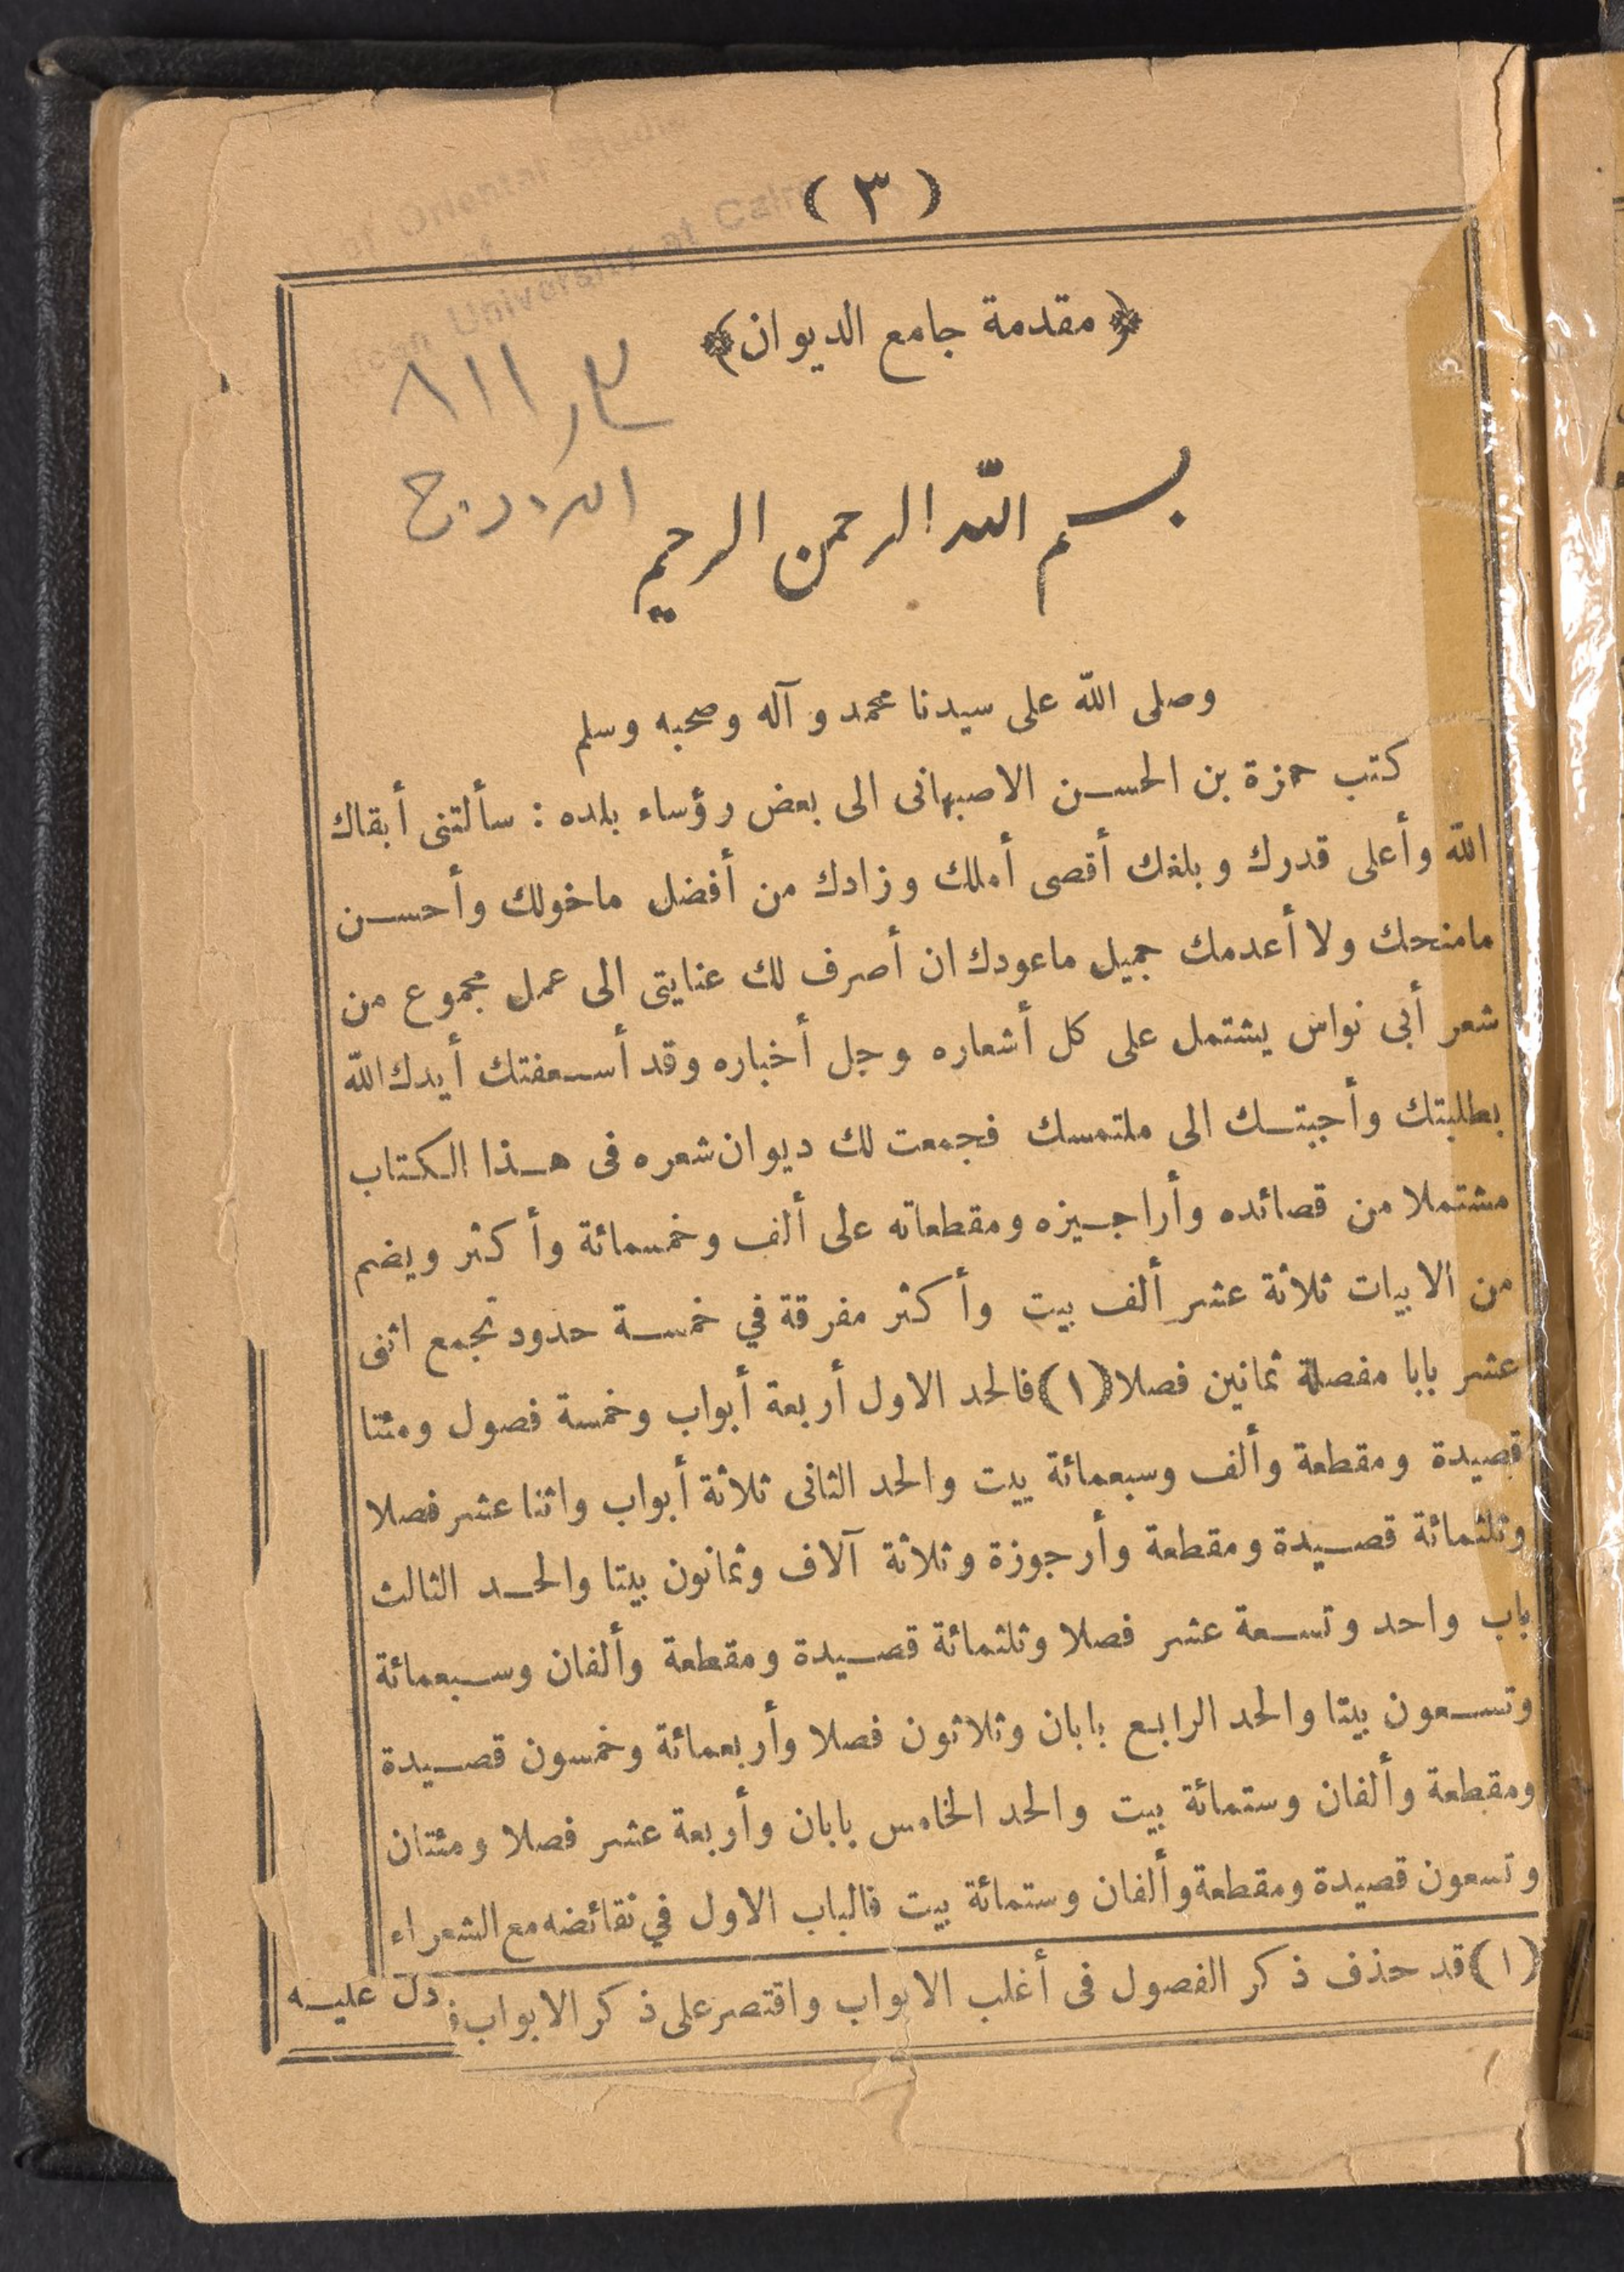 ( ٣ )
of Oriental Studies
of
University at Cairo
﴿ مقدمة جامع الديوان ﴾
٨١١
بسم الله الرحمن الرحيم
وصلى الله على سيدنا محمد و آله وصحبه وسلم
كتب حمزة بن الحسن الاصبهانى الى بعض رؤساء بلده : سألتنى أبقاك
الله وأعلى قدرك و بلغك أقصى أملك وزادك من أفضل ماخولك وأحسن
مامنحك ولا أعدمك جميل ماعودك ان أصرف لك عنايتى الى عمل مجموع من
شعر أبى نواس يشتمل على كل أشعاره وجل أخباره وقد أسعفتك أيدك الله
بطلبتك وأجبتك الى ملتمسك فجمعت لك ديوان شعره فى هذا الكتاب
مشتملا من قصائده وأراجيزه ومقطعاته على ألف وخمسمائة وأكثر ويضم
من الابيات ثلاثة عشر ألف بيت وأكثر مفرقة في خمسة حدود تجمع اثنى
عشر بابا مفصلة ثمانين فصلا (١) فالحد الاول أربعة أبواب وخمسة فصول ومئتا
قصيدة ومقطعة وألف وسبعمائة بيت والحد الثانى ثلاثة أبواب واثنا عشر فصلا
وثلثمائة قصيدة ومقطعة وأرجوزة وثلاثة آلاف وثمانون بيتا والحد الثالث
باب واحد وتسعة عشر فصلا وثلثمائة قصيدة ومقطعة وألفان وسبعمائة
وتسعون بيتا والحد الرابع بابان وثلاثون فصلا وأربعمائة وخمسون قصيدة
ومقطعة وألفان وستمائة بيت والحد الخامس بابان وأربعة عشر فصلا ومئتان
وتسعون قصيدة ومقطعة وألفان وستمائة بيت فالباب الاول في نقائضه مع الشعراء
(١) قد حذف ذكر الفصول فى أغلب الابواب واقتصر على ذكر الابواب دل عليه